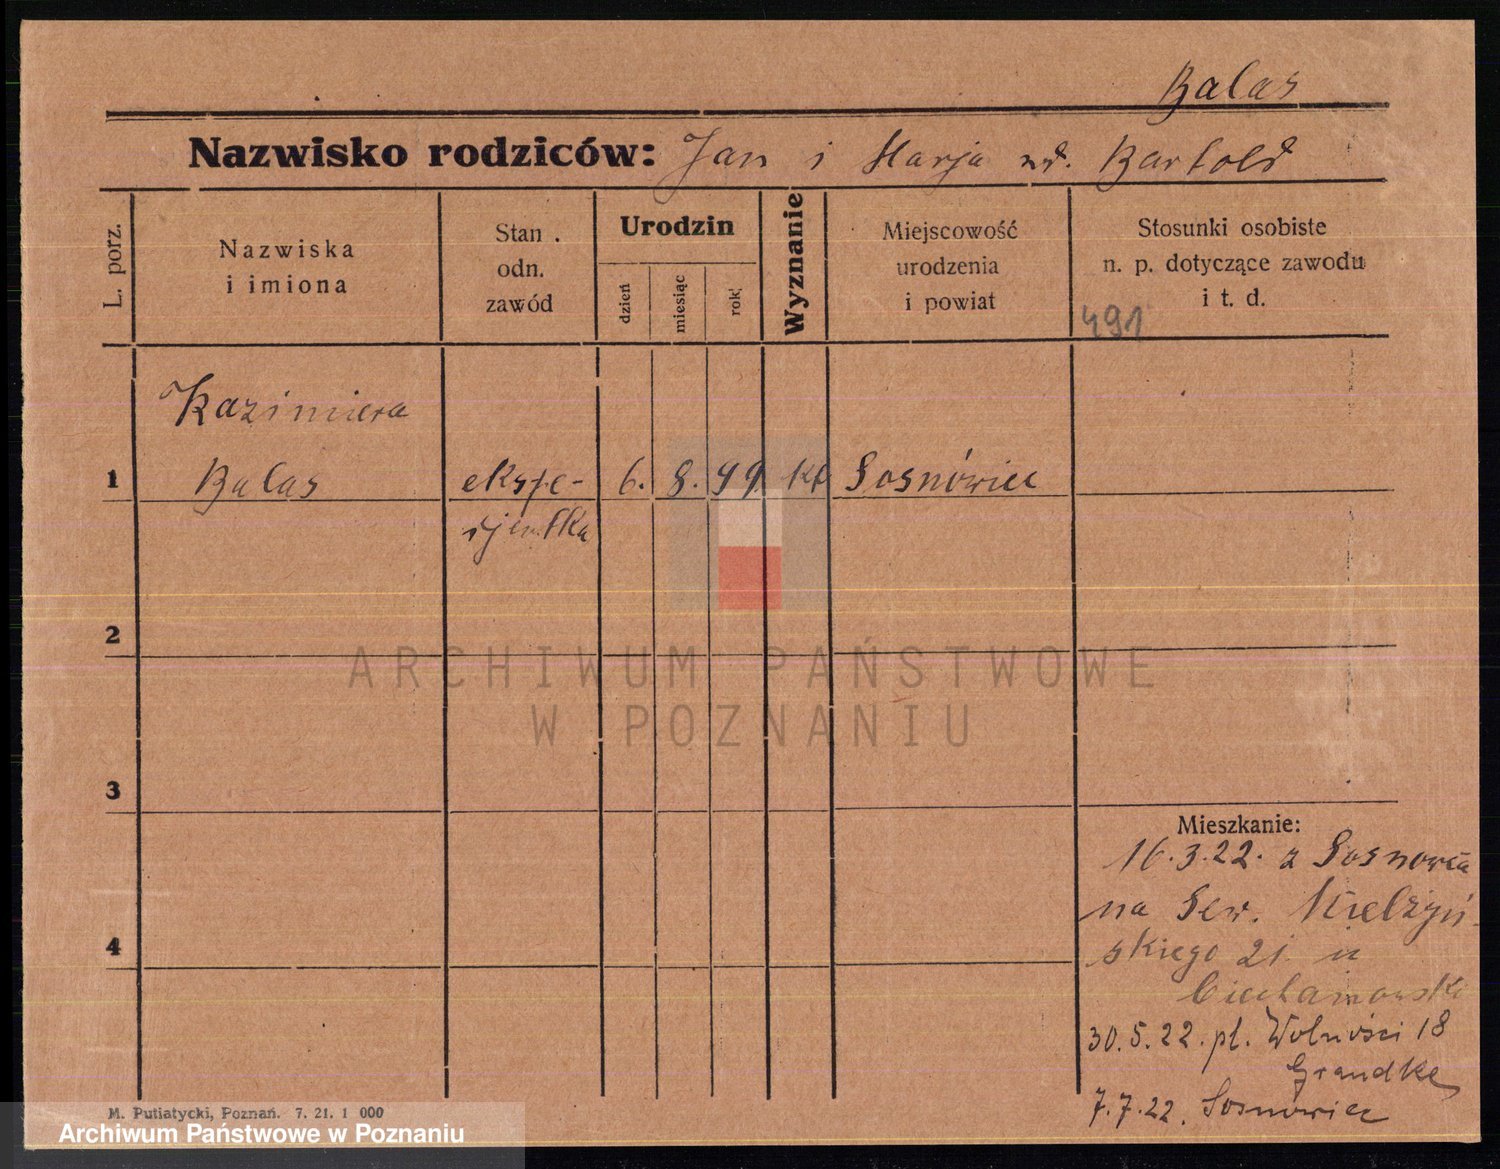 Balas
Nazwisko rodziców: Jan i Marja urd. Bartold
L. porz.
Nazwiska
i imiona
Stan
odn.
zawód
Urodzin
dzień
miesiąc
rok
Wyznanie
Miejscowość
urodzenia
i powiat
Stosunki osobiste
n. p. dotyczące zawodu
i t. d.
491
Kazimiera
1 Balas ekspe- 6. 8. 99 kt Sosnówiec
djentka
2
3
4
Mieszkanie:
16.3.22. z Sosnowca
na Sew. Mielżyń-
skiego 21 u
Ciechanowski
30.5.22. pl. Wolności 18
Grandke
7.7.22. Sosnówiec
M. Putiatycki, Poznań. 7. 21. 1 000
ARCHIWUM PAŃSTWOWE
W POZNANIU
Archiwum Państwowe w Poznaniu